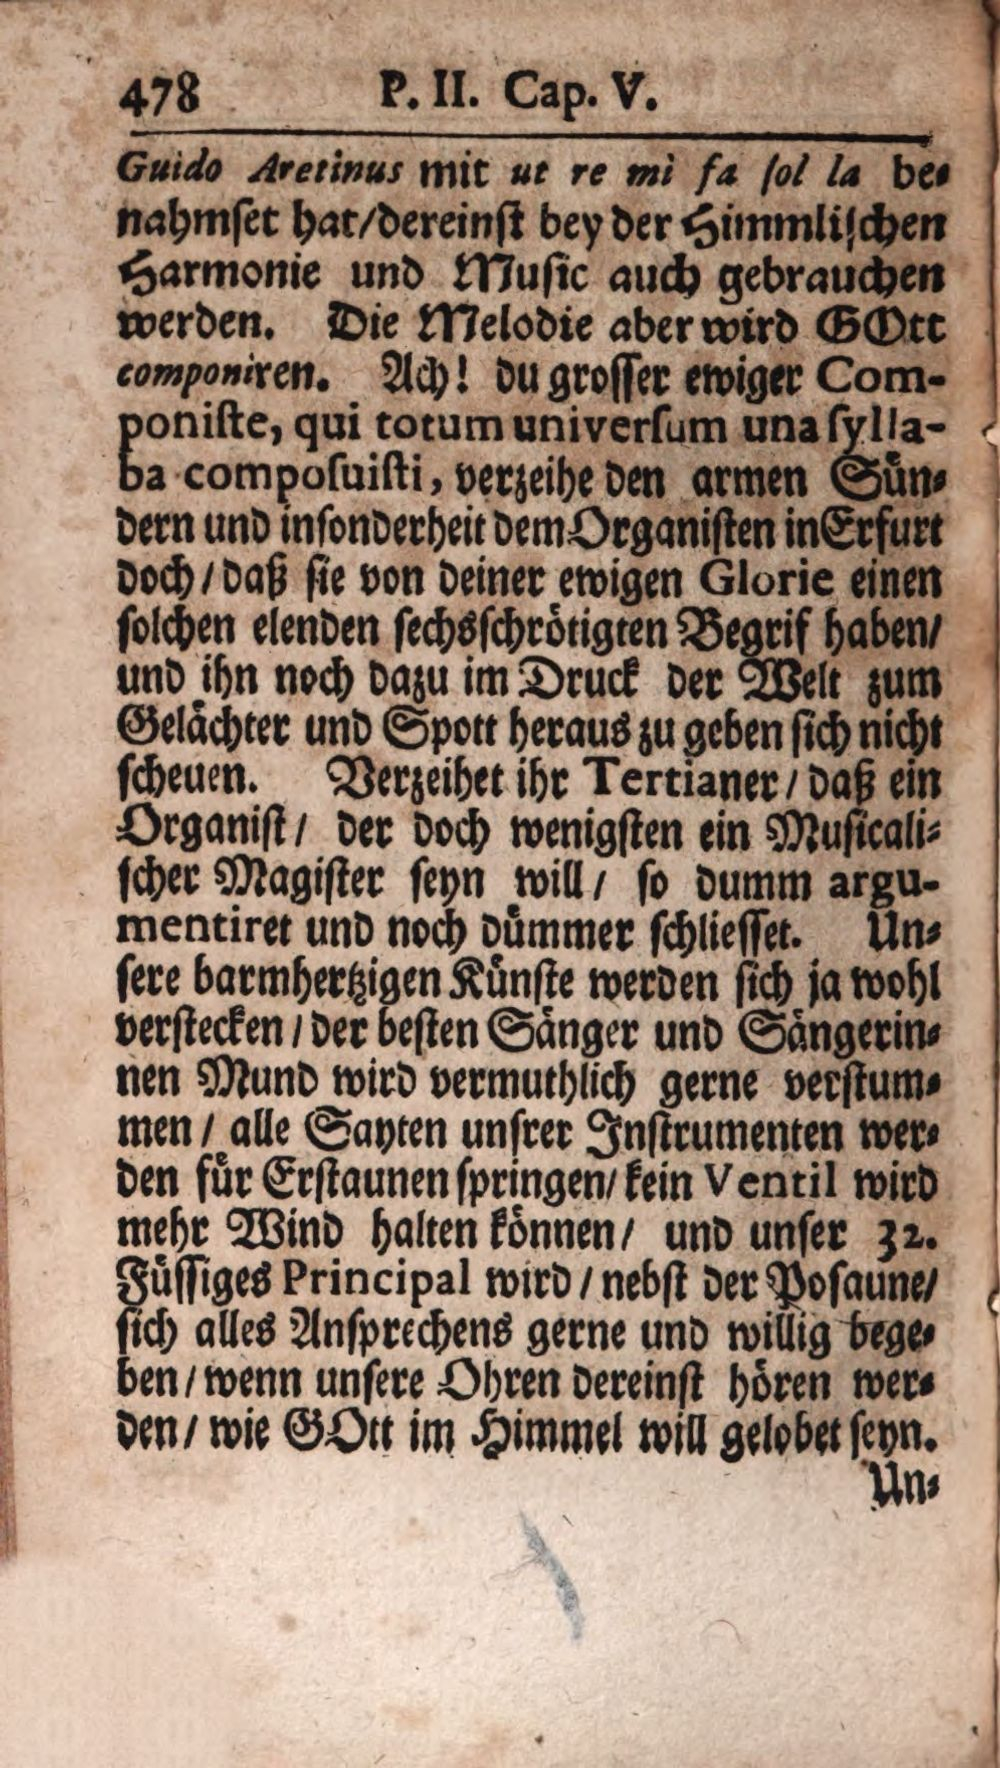 478 P. II. Cap. V.
Guido Aretinus mit ut re mi fa ſol la be-
nahmſet hat/dereinſt bey der Himmliſchen
Harmonie und Muſic auch gebrauchen
werden. Die Melodie aber wird GOtt
componiren. Ach! du groſſer ewiger Com-
poniſte, qui totum univerſum una ſylla-
ba compoſuiſti, verzeihe den armen Suͤn-
dern und inſonderheit dem Organiſten in Erfurt
doch/daß ſie von deiner ewigen Glorie einen
ſolchen elenden ſechsſchroͤtigten Begrif haben/
und ihn noch dazu im Druck der Welt zum
Gelaͤchter und Spott heraus zu geben ſich nicht
ſcheuen. Verzeihet ihr Tertianer/daß ein
Organiſt/ der doch wenigſten ein Muſicali-
ſcher Magiſter ſeyn will/ ſo dumm argu-
mentiret und noch duͤmmer ſchlieſſet. Un-
ſere barmhertzigen Kuͤnſte werden ſich ja wohl
verſtecken/der beſten Saͤnger und Saͤngerin-
nen Mund wird vermuthlich gerne verſtum-
men/ alle Sayten unſrer Inſtrumenten wer-
den fuͤr Erſtaunen ſpringen/kein Ventil wird
mehr Wind halten koͤnnen/ und unſer 32.
Fuͤſſiges Principal wird/nebſt der Poſaune/
ſich alles Anſprechens gerne und willig bege-
ben/wenn unſere Ohren dereinſt hoͤren wer-
den/ wie GOtt im Himmel will gelobet ſeyn.
Un-